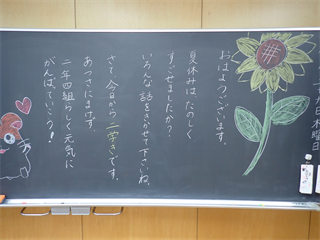 九日木曜日
おはようございます。
夏休みはたのしく
すごせましたか？
いろんな話をきかせて下さいね。
さて、今日から二学きです。
あつさにまけず、
二年四組らしく元気に
がんばっていこう！